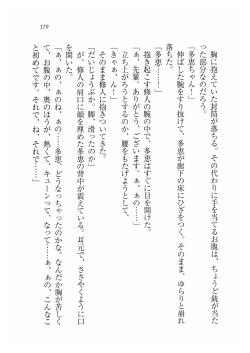 179
胸に抱えていた封筒が落ちる。その代わりに手を当てるお腹は、ちょうど銃が当た
った部分なのだろう。
「多恵ちゃん！」
伸ばした腕をすり抜けて、多恵が廊下の床にひざをつく。そのまま、ゆらりと崩れ
落ちた。
「多恵……！」
抱き起こす修人の腕の中で、多恵はすぐに目を開けた。
「あ、先輩、ありがとう、ございます。ぁ、あの……」
立ち上がろうとするのか、腰をもたげようとして、
「きゃぁ！」
そのまま修人に抱きついてきた。
「だいじょうぶか。脚、滑ったのか」
が、修人の肩口に顔を埋めた多恵の背中が震えている。耳元で、ささやくように口
を開いた。
「ぁ、あの、あのね、ぁの……多恵、どうなっちゃったのかな。なんだか胸が苦しく
て、お腹の中、奥のほうが、熱くて、キューーンって、なって……ぁ、あの、こんなこ
と初めてです。それで、ね、それで……」